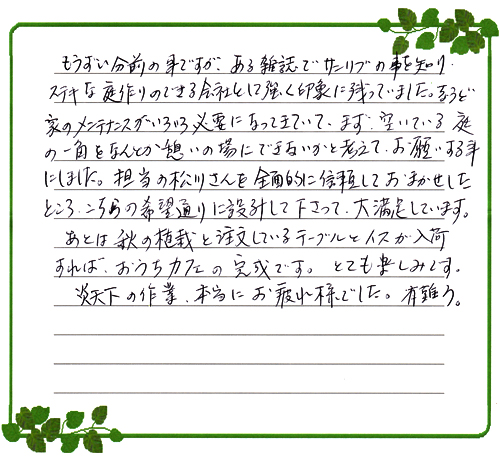 もうずい分前の事ですが、ある雑誌でサンリブの事を知り、
ステキな庭作りのできる会社として強く印象に残っていました。ちょうど
家のメンテナンスがいろいろ必要になってきていて、まず、空いている庭
の一角をなんとか憩いの場にできないかと考えて、お願いする事
にしました。担当の松川さんを全面的に信頼しておまかせした
ところ、こちらの希望通りに設計して下さって、大満足しています。
あとは秋の植栽と注文しているテーブルとイスが入荷
すれば、おうちカフェの完成です。とても楽しみです。
炎天下の作業、本当にお疲れ様でした。有難う。